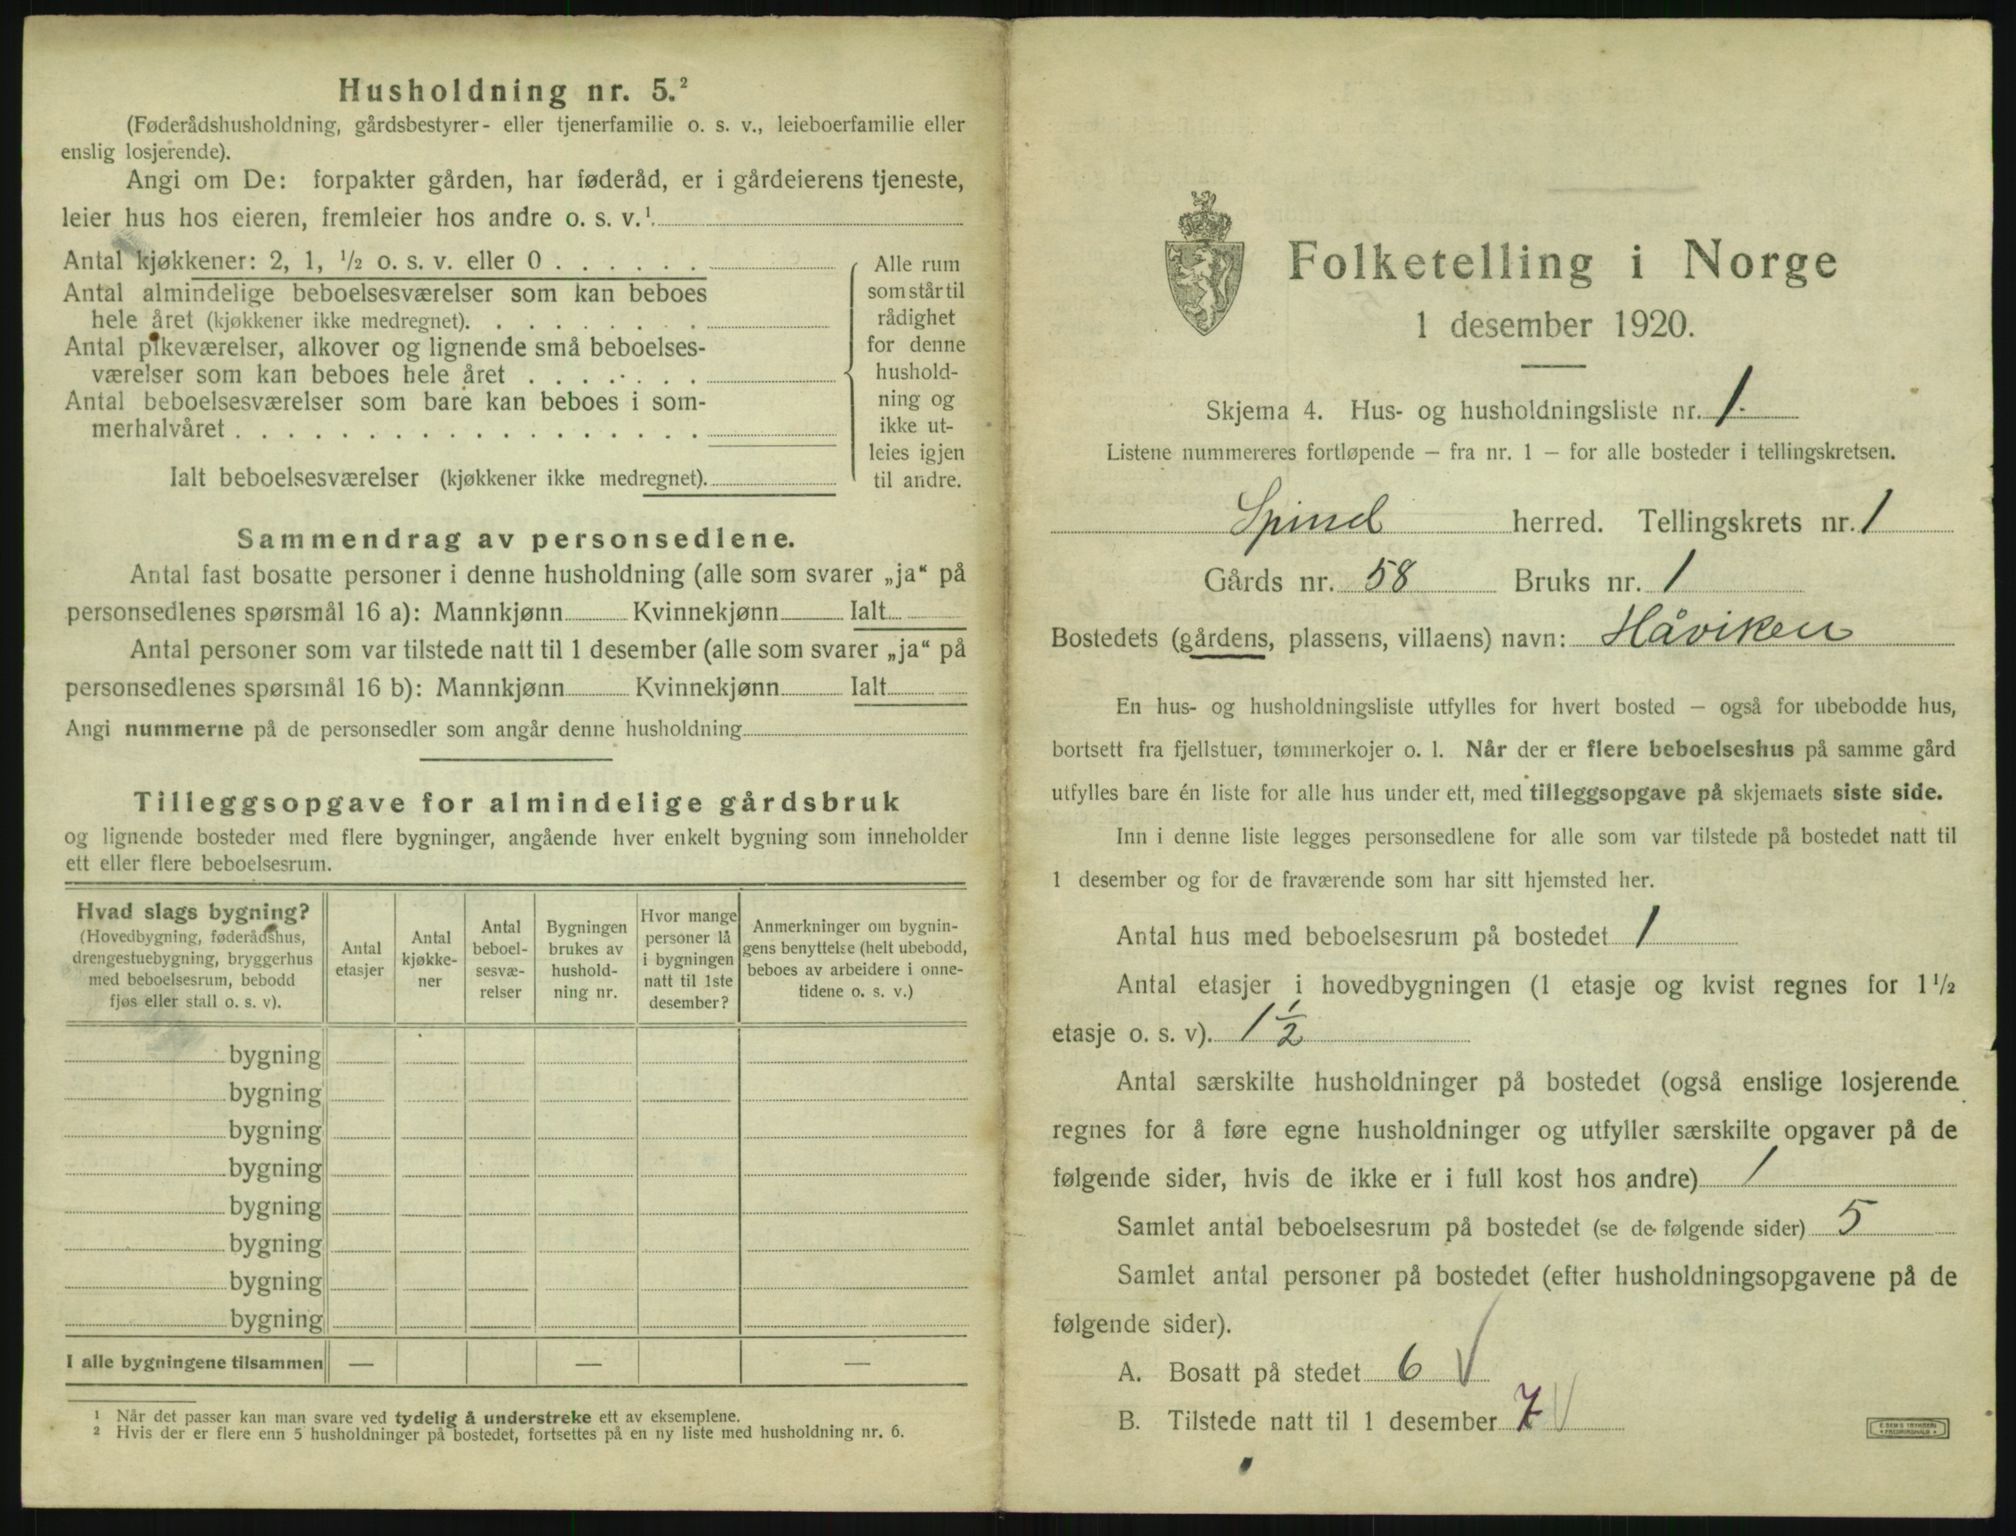 Husholdning nr. 5.²
(Føderådshusholdning, gårdsbestyrer- eller tjenerfamilie o. s. v., leieboerfamilie eller
enslig losjerende).
Angi om De: forpakter gården, har føderåd, er i gårdeierens tjeneste,
leier hus hos eieren, fremleier hos andre o. s. v.¹
Antal kjøkkener: 2, 1, ½ o. s. v. eller 0
Antal almindelige beboelsesværelser som kan beboes
hele året (kjøkkener ikke medregnet).
Antal pikeværelser, alkover og lignende små beboelses-
værelser som kan beboes hele året
Antal beboelsesværelser som bare kan beboes i som-
merhalvåret
Ialt beboelsesværelser (kjøkkener ikke medregnet).
Alle rum
som står til
rådighet
for denne
hushold-
ning og
ikke ut-
leies igjen
til andre.
Sammendrag av personsedlene.
Antal fast bosatte personer i denne husholdning (alle som svarer „ja“ på
personsedlenes spørsmål 16 a): Mannkjønn Kvinnekjønn Ialt
Antal personer som var tilstede natt til 1 desember (alle som svarer „ja“ på
personsedlenes spørsmål 16 b): Mannkjønn Kvinnekjønn Ialt
Angi nummerne på de personsedler som angår denne husholdning
Tilleggsopgave for almindelige gårdsbruk
og lignende bosteder med flere bygninger, angående hver enkelt bygning som inneholder
ett eller flere beboelsesrum.
Hvad slags bygning?
(Hovedbygning, føderådshus,
drengestuebygning, bryggerhus
med beboelsesrum, bebodd
fjøs eller stall o. s. v).
Antal
etasjer
Antal
kjøkke-
ner
Antal
beboel-
sesvæ-
relser
Bygningen
brukes av
hushold-
ning nr.
Hvor mange
personer lå
i bygningen
natt til 1ste
desember?
Anmerkninger om bygnin-
gens benyttelse (helt ubebodd,
beboes av arbeidere i onne-
tidene o. s. v.)
bygning
bygning
bygning
bygning
bygning
bygning
bygning
bygning
I alle bygningene tilsammen — — —
¹ Når det passer kan man svare ved tydelig å understreke ett av eksemplene.
² Hvis der er flere enn 5 husholdninger på bostedet, fortsettes på en ny liste med husholdning nr. 6.
Folketelling i Norge
1 desember 1920.
Skjema 4. Hus- og husholdningsliste nr. 1.
Listene nummereres fortløpende — fra nr. 1 — for alle bosteder i tellingskretsen.
Spind herred. Tellingskrets nr. 1
Gårds nr. 58 Bruks nr. 1
Bostedets (gårdens, plassens, villaens) navn: Håviken
En hus- og husholdningsliste utfylles for hvert bosted — også for ubebodde hus,
bortsett fra fjellstuer, tømmerkojer o. l. Når der er flere beboelseshus på samme gård
utfylles bare én liste for alle hus under ett, med tilleggsopgave på skjemaets siste side.
Inn i denne liste legges personsedlene for alle som var tilstede på bostedet natt til
1 desember og for de fraværende som har sitt hjemsted her.
Antal hus med beboelsesrum på bostedet 1
Antal etasjer i hovedbygningen (1 etasje og kvist regnes for 1½
etasje o. s. v). 1½
Antal særskilte husholdninger på bostedet (også enslige losjerende
regnes for å føre egne husholdninger og utfyller særskilte opgaver på de
følgende sider, hvis de ikke er i full kost hos andre) 1
Samlet antal beboelsesrum på bostedet (se de følgende sider) 5
Samlet antal personer på bostedet (efter husholdningsopgavene på de
følgende sider).
A. Bosatt på stedet 6 V
B. Tilstede natt til 1 desember 7 V